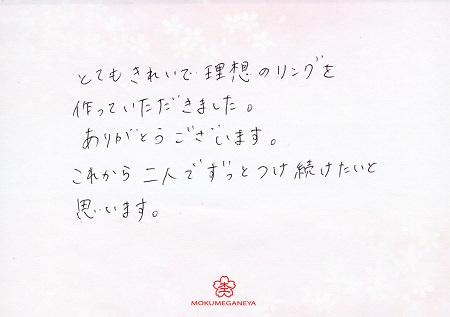 とてもきれいで理想のリングを
作っていただきました。
ありがとうございます。
これから二人でずっとつけ続けたいと
思います。
MOKUMEGANEYA